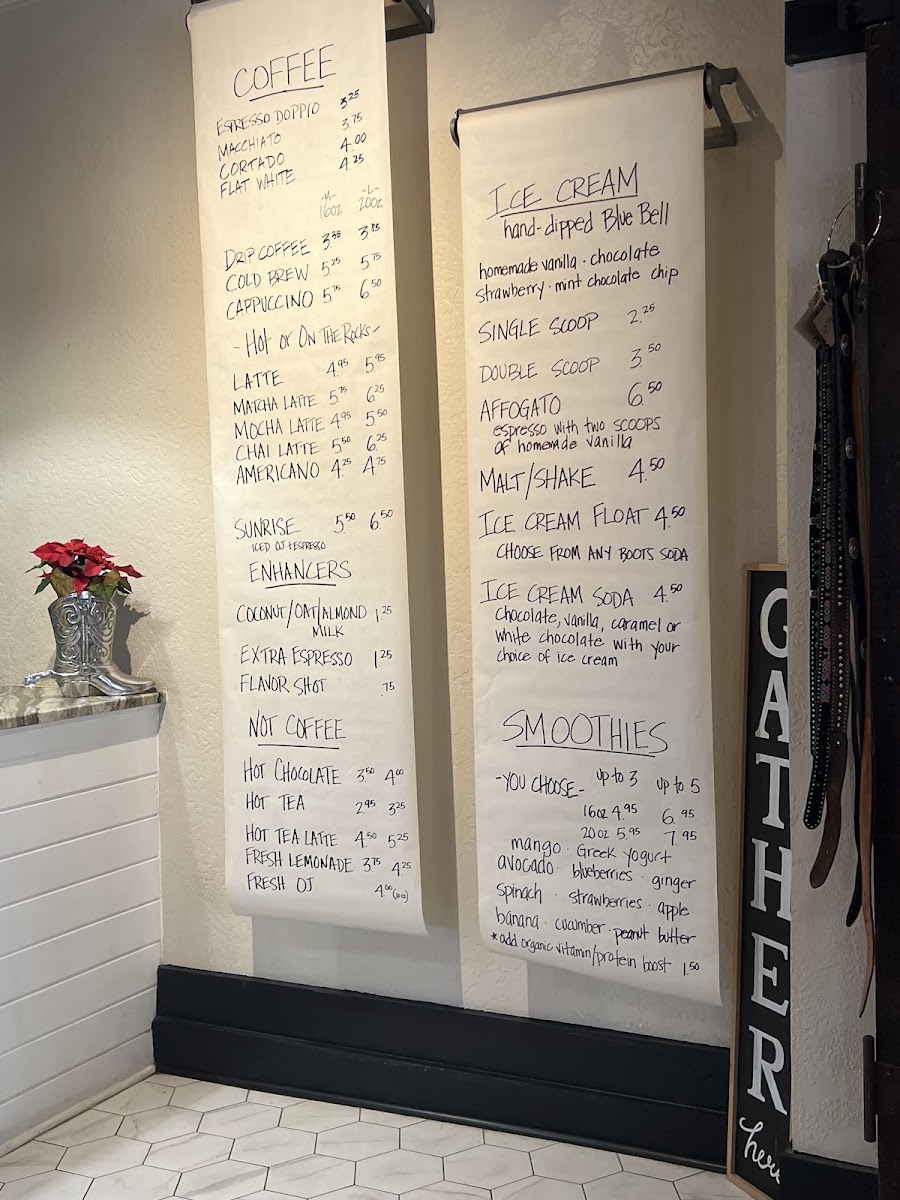 COFFEE
ESPRESSO DOPPIO 3.25
MACCHIATO 3.75
CORTADO 4.00
FLAT WHITE 4.25
-M- -L-
16oz 20oz
DRIP COFFEE 3.35 3.85
COLD BREW 5.25 5.75
CAPPUCCINO 5.75 6.50
- Hot or On The Rocks -
LATTE 4.95 5.95
MATCHA LATTE 5.75 6.25
MOCHA LATTE 4.95 5.50
CHAI LATTE 5.50 6.25
AMERICANO 4.25 4.75
SUNRISE 5.50 6.50
ICED OJ + ESPRESSO
ENHANCERS
COCONUT/OAT/ALMOND 1.25
MILK
EXTRA ESPRESSO 1.25
FLAVOR SHOT .75
NOT COFFEE
HOT CHOCOLATE 3.50 4.00
HOT TEA 2.95 3.25
HOT TEA LATTE 4.50 5.25
FRESH LEMONADE 3.75 4.25
FRESH OJ 4.00
ICE CREAM
hand-dipped Blue Bell
homemade vanilla · chocolate
strawberry · mint chocolate chip
SINGLE SCOOP 2.25
DOUBLE SCOOP 3.50
AFFOGATO 6.50
espresso with two SCOOPS
of homemade vanilla
MALT/SHAKE 4.50
ICE CREAM FLOAT 4.50
CHOOSE FROM ANY BOOTS SODA
ICE CREAM SODA 4.50
chocolate, vanilla, caramel or
white chocolate with your
choice of ice cream
SMOOTHIES
-YOU CHOOSE- up to 3 up to 5
16oz 4.95 6.95
20oz 5.95 7.95
mango · Greek yogurt
avocado · blueberries · ginger
spinach · strawberries · apple
banana · cucumber · peanut butter
*add organic vitamin/protein boost 1.50
GATHER
here